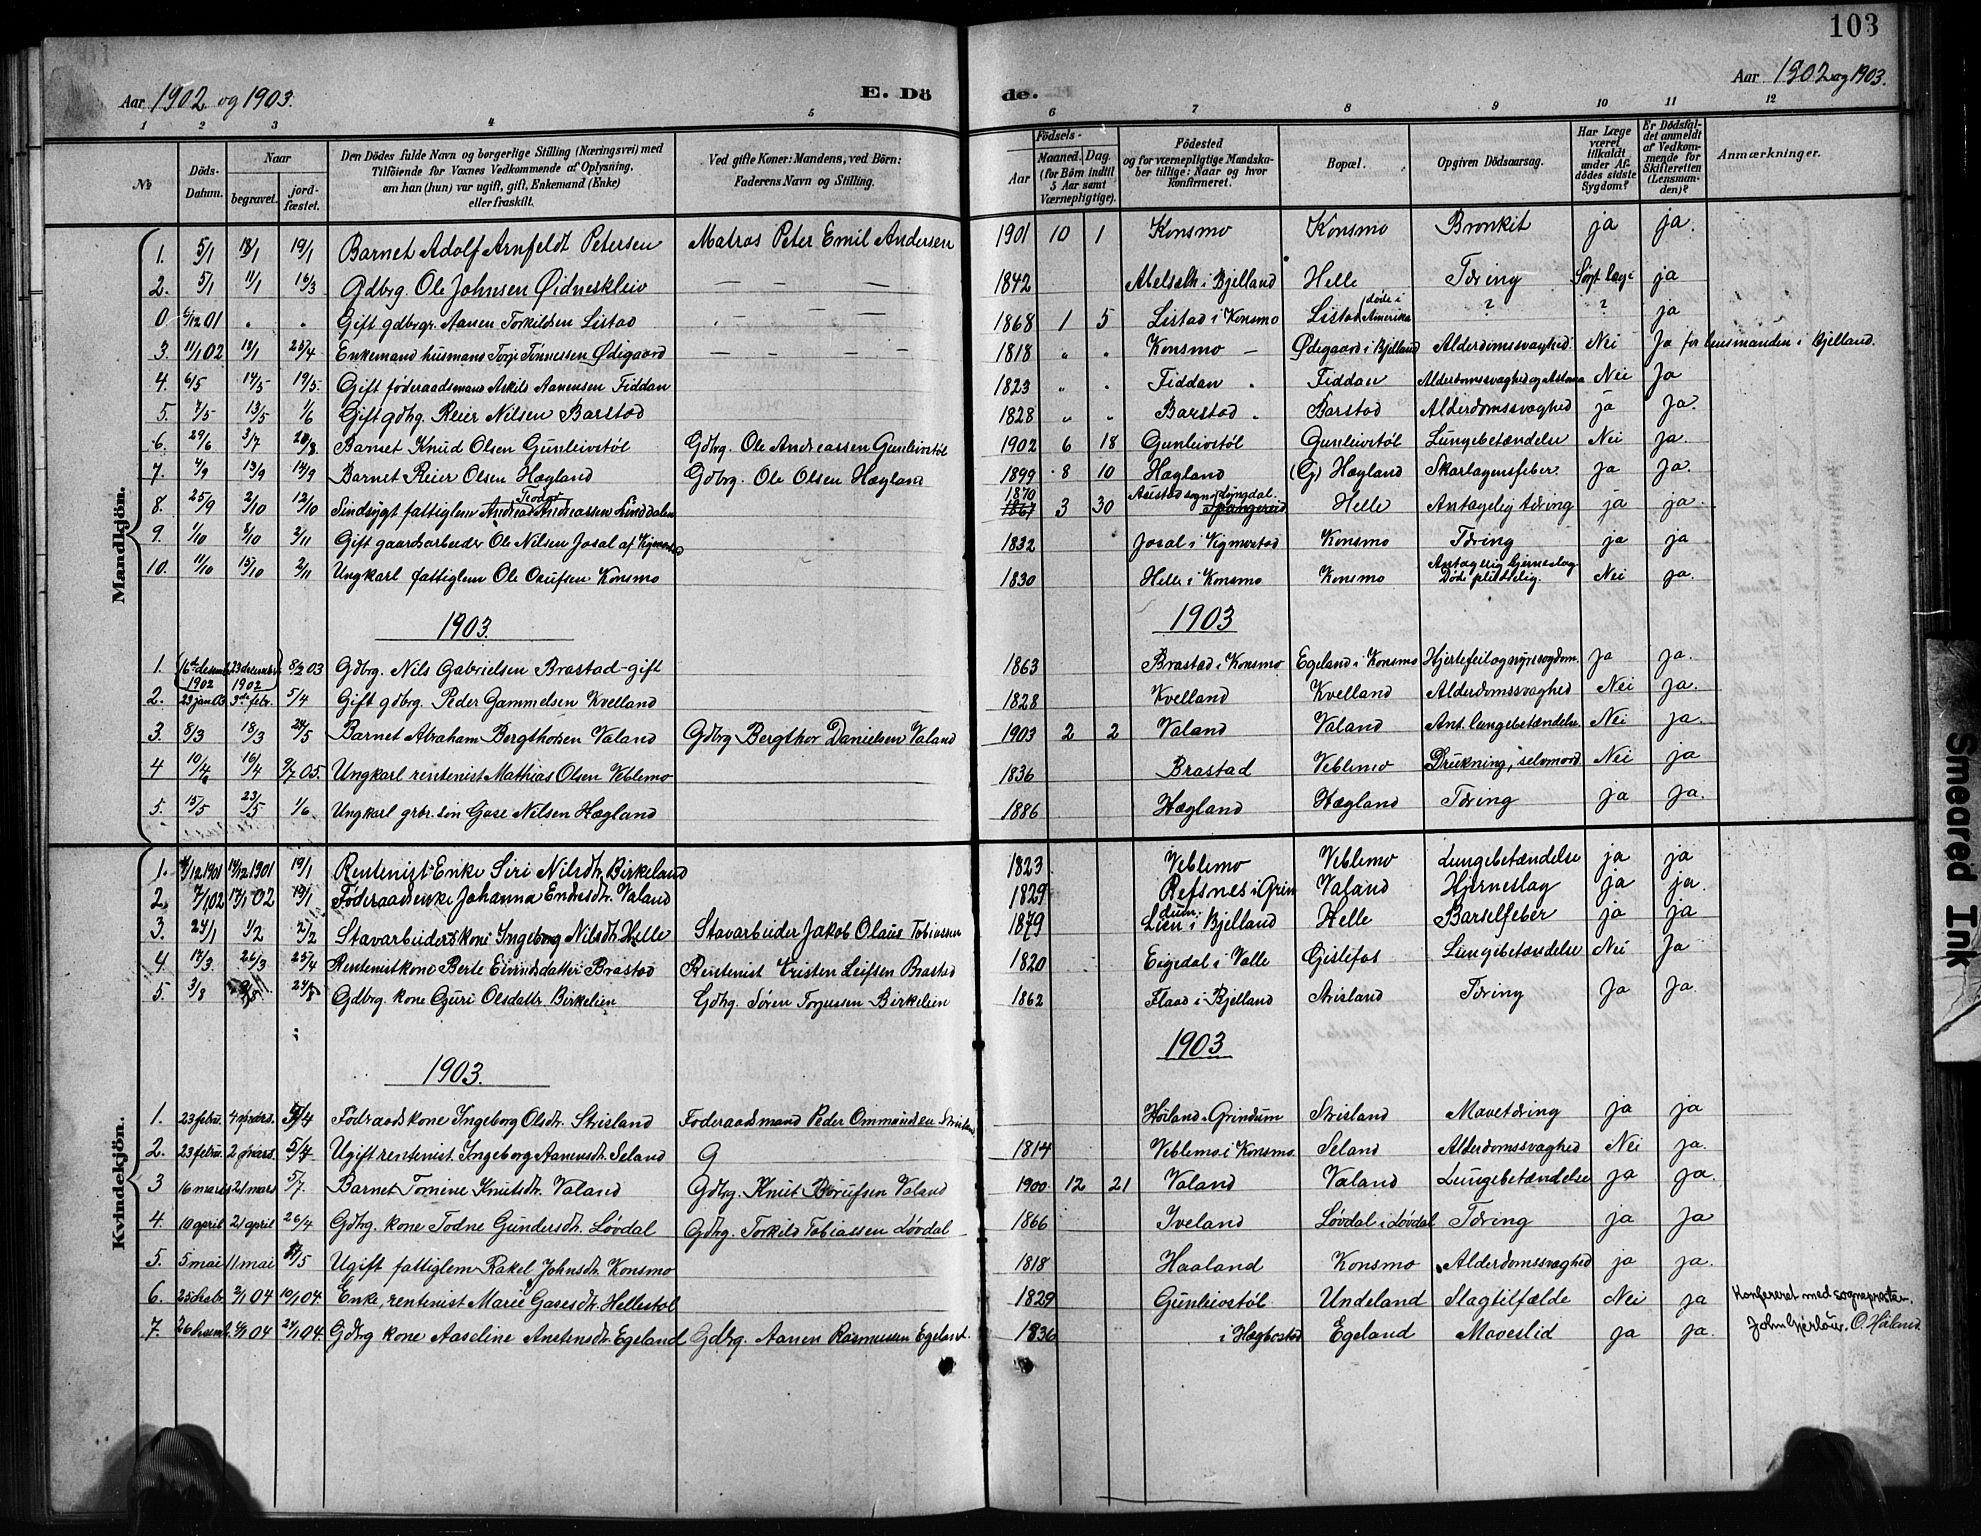 103
Aar 1902 og 1903. E. Dö de. Aar 1902 og 1903.
1 2 3 4 5 6 7 8 9 10 11 12
No Döds-Datum. Naar begravet. jord-fæstet. Den Dödes fulde Navn og borgerlige Stilling (Næringsvei) med Tilföiende for Voxnes Vedkommende af Oplysning, om han (hun) var ugift, gift, Enkemand (Enke) eller fraskilt. Ved gifte Koner: Mandens, ved Börn: Faderens Navn og Stilling. Födsels- Aar Maaned. Dag. (for Börn indtil 5 Aar samt Værnepligtige). Födested og for værnepligtige Mandska-ber tillige: Naar og hvor konfirmeret. Bopæl. Opgiven Dödsaarsag. Har Læge været tilkaldt under Af-dödes sidste Sygdom? Er Dödsfal-det anmeldt af Vedkom-mende for Skifteretten (Lensman-den)? Anmærkninger.
Mandkjön.
1. 5/1 18/1 19/1 Barnet Adolf Arnfeldt Petersen Matros Peter Emil Andersen 1901 10 1 Konsmo Konsmo Bronkit ja ja.
2. 5/1 11/1 16/3 Gdbrg. Ole Johnsen Øidneskleiv — — — 1842 i Bjelland Helle Tæring Søgt læge ja
0 6/12 01 " " Gift gdbrgr. Aanen Torkildsen Listad — — — 1868 1 5 Listad i Konsmo Listad (døde i Amerika ? ? ja
3. 11/1 02 18/1 25/4 Enkemand husmand Torje Tønnessen Ødegaard — — — — 1818 " " Konsmo — Ødegaard i Bjelland Alderdomssvaghed. Nei Ja for lensmanden i Bjelland.
4. 6/5 14/5 19/5. Gift føderaadsmand Askild Aanensen Fiddan 1823 " " Fiddan " Fiddan Alderdomssvaghed og Astma Nei Ja
5. 7/5 13/5 1/6 Gift gdbg. Reier Nilsen Barstad 1828 " " Barstad " Barstad Alderdomssvaghed ja Ja.
6. 29/6 3/7 Barnet Knud Olsen Gunleivstøl Gdbrg. Ole Andreassen Gunleivstøl 1902 6 18 Gunleivstøl Gunleivstøl Lungebetændelse Nei ja.
7. 7/9 13/9 14/9 Barnet Reier Olsen Hægland Gdbrg. Ole Olsen Hægland 1899 8 10 Hægland (G) Hægland Skarlagensfeber ja Ja.
8. 25/9 2/10 12/10 Sindsygt fattiglem Andreas Teodor Andreassen Linddalen 1870 1867 3 30 Austad sogn Lyngdal Spangereid Helle Antagelig tæring ja ja.
9. 1/10 8/10 2/11 Gift gaardsarbeider Ole Nilsen Josal af Vigmostad 1832 Josal i Vigmostad Konsmo Tæring ja ja
10. 11/10 15/10 2/11 Ungkarl fattiglem Ole Osufsen Konsmo 1830 Helle i Konsmo Konsmo Antagelig hjerneslag Døde plidselig. Nei ja.
1903. 1903
1. 16de desemb. 1902 23 desember 1902 8/2 03 Gdbrg. Nils Gabrielsen Brastad-gift 1863 Brastad i Konsmo Egeland i Konsmo Hjertefeil og nyresygdom. Ja Ja.
2. 23 jan 03 3de febr. 5/4 Gift gdbrg. Peder Gammelsen Kvelland 1828 Kvelland Kvelland Alderdomssvaghed Nei Ja.
3. 8/3 18/3 24/5 Barnet Abraham Bergthorsen Valand Gdbrg Bergthor Danielsen Valand 1903 2 2 Valand Valand Ant. lungebetændelse Nei Ja.
4 10/4 16/4 9/7 05. Ungkarl rentenist Mathias Olsen Veblemo 1836 Brastad Veblemo Drukning, selvmord Nei ja
5. 15/5 23/5 1/6. Ungkarl grbr. søn Gase Nilsen Hægland 1886 Hægland Hægland Tæring ja Ja.
Kvindekjön.
1. 4/12 1901 14/12 1901 19/1 Rentenist-Enke Siri Nilsdtr. Birkeland 1823 Veblemo Veblemo Lungebetændelse ja ja
2. 7/1 02 17/1 02 19/1 Føderaadsenke Johanna Endresdtr. Valand 1829 Refsnes i Grindum. Valand Hjerneslag ja ja.
3. 24/1 1/2 2/2 Stavarbeiderskone Ingeborg Nilsdtr. Helle Stavarbeider Jakob Olaus Tobiassen 1879 Lien i Bjelland Helle Barselfeber ja ja
4. 17/3. 26/3 25/4 Rentenistkone Berte Eivindsdatter Brastad Rentenist Kristen Leifsen Brastad 1820 Eigedal i Valle Geslefos Lungebetændelse Nei Ja
5. 3/8 24/8 Gdbrg kone Guri Olsdatter Birkelien Gdbg. Søren Torjussen Birkelien 1862 Flaad i Bjelland Strisland Tæring Ja Ja.
1903. 1903
1. 23 febru. 4 mars. 5/4 Fødraadskone Ingeborg Olsdtr. Strisland Føderaadsmand Peder Ommundsen Strisland Høiland i Grindum Strisland Mavetæring ja ja
2. 23 febru. 2 mars. 5/4 Ugift rentenist. Ingeborg Aanensdtr. Seland G 1814 Veblemo i Konsmo. Seland Alderdomssvaghed Nei ja.
3 16 mars 21 mars 5/7. Barnet Tomine Knutsdtr. Valand Gdbrg. Knut Børufsen Valand 1900 12 21 Valand Valand Lungebetændelse ja ja.
4. 10 april 21 april 26/4 Gdbg. kone Todne Gundersdtr. Løvdal Gdbg. Torkild Tobiassen Løvdal 1866 Iveland Løvdal i Løvdal Tæring ja Ja
5. 5 mai 11 mai Ugift fattiglem Rakel Johnsdtr. Konsmo 1818 Haaland Konsmo Alderdomssvaghed ja ja.
6. 25 desbr. 2/1 04 10/1 04. Enke, rentenist Marie Gasesdtr. Hellestøl 1829 Gunleivstøl Undeland Slagtilfælde Nei ja Konfereret med sognepresten.
7. 26 desemb. 6/1 04 24/1 04. Gdbrg kone Aaseline Anstensdtr. Egeland Gdbrg. Aanen Rasmussen Egeland. 1836 i Hægbostad Egeland Maveslid ja ja. John Gjerløw. O. Høiland.
Smeared Ink